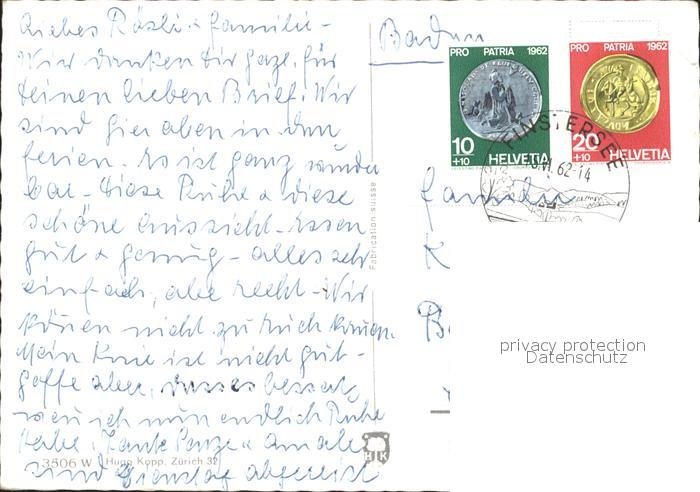 Liebes Rösli & Familie -
Wir danken Dir ganz für
Deinen lieben Brief. Wir
sind hier oben in den
Ferien. Es ist ganz wunder
bar - diese Ruhe & diese
schöne Aussicht - Essen
gut & genug - alles sehr
einfach, aber recht - Wir
können nicht zu Euch kommen.
Mein Knie ist nicht gut -
hoffe aber, dass es bessert,
wenn ich nun endlich Ruhe
habe.
sind Dienstag abgereist
3506 W Hugo Kopp, Zürich 32
HK
Fabrication suisse
Baden
PRO PATRIA 1962
10
+10 HELVETIA
PRO PATRIA 1962
20
+10 HELVETIA
FINSTERSEE
VI. 62-14
Familie
K
B
privacy protection
Datenschutz